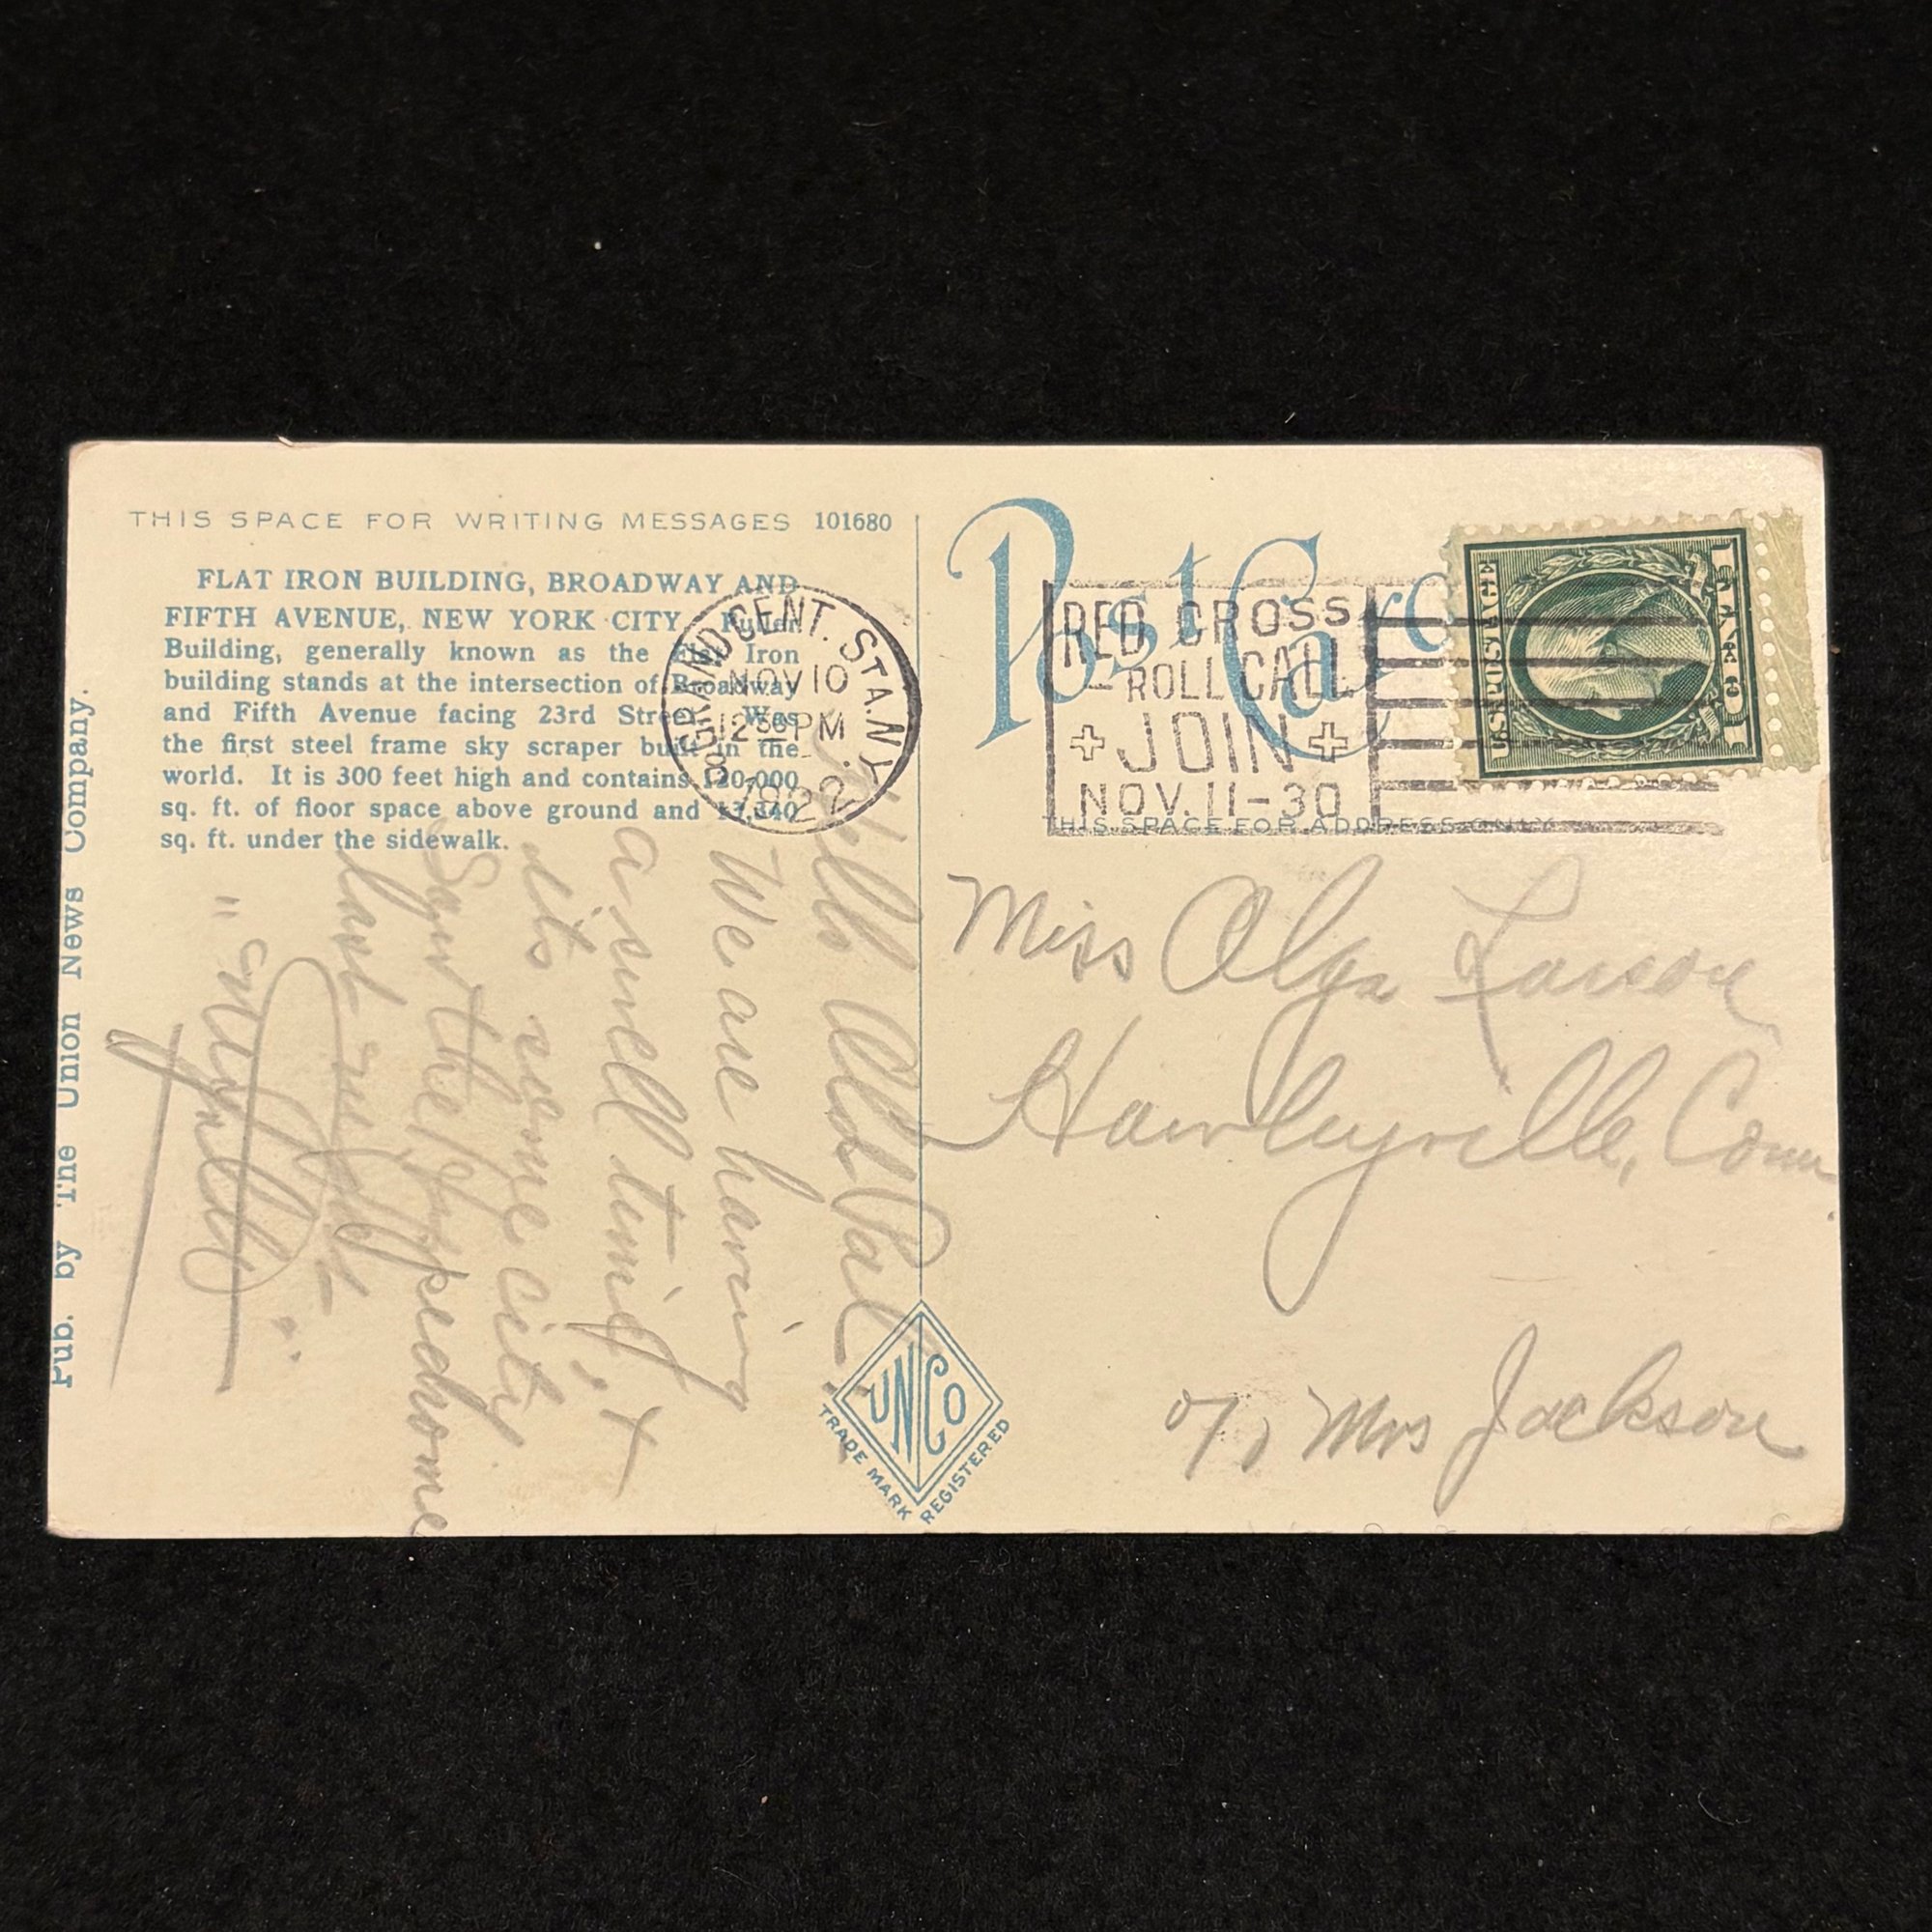 THIS SPACE FOR WRITING MESSAGES 101680
FLAT IRON BUILDING, BROADWAY AND
FIFTH AVENUE, NEW YORK CITY. Fuller
Building, generally known as the Flat Iron
building stands at the intersection of Broadway
and Fifth Avenue facing 23rd Street. Was
the first steel frame sky scraper built in the
world. It is 300 feet high and contains 120,000
sq. ft. of floor space above ground and
sq. ft. under the sidewalk.
Pub. by The Union News Company.
Hello Old Pal
We are having
a swell time, &
its some city
Saw the Hippodrome
last night
GRAND CENT. STA. N.Y.
NOV 10
12 30 PM
1922
Post Card
RED CROSS
ROLL CALL
+ JOIN +
NOV. 11-30
THIS SPACE FOR ADDRESS ONLY
U.S. POSTAGE
1 CENT 1
Miss Olga Larson
Hawleyville, Conn
c/o Mrs Jackson
UNCO
TRADE MARK REGISTERED